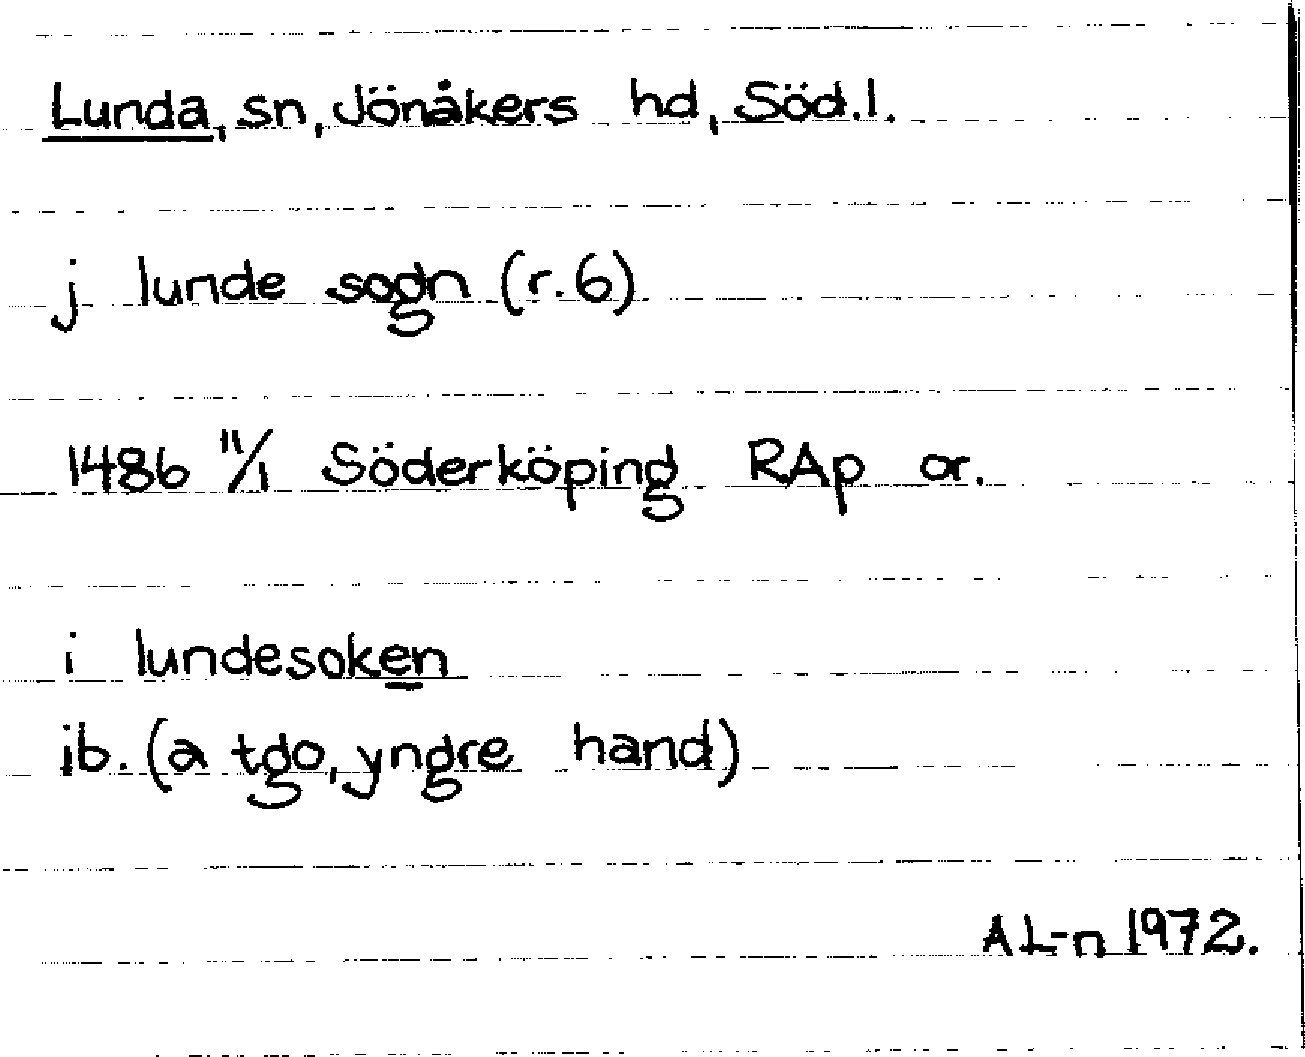 Lunda, sn, Jönåkers hd, Söd.l.
j lunde sogn (r.6)
1486 11/1 Söderköping RAp or.
i lundesoken
ib. (a tgo, yngre hand)
AL-n 1972.